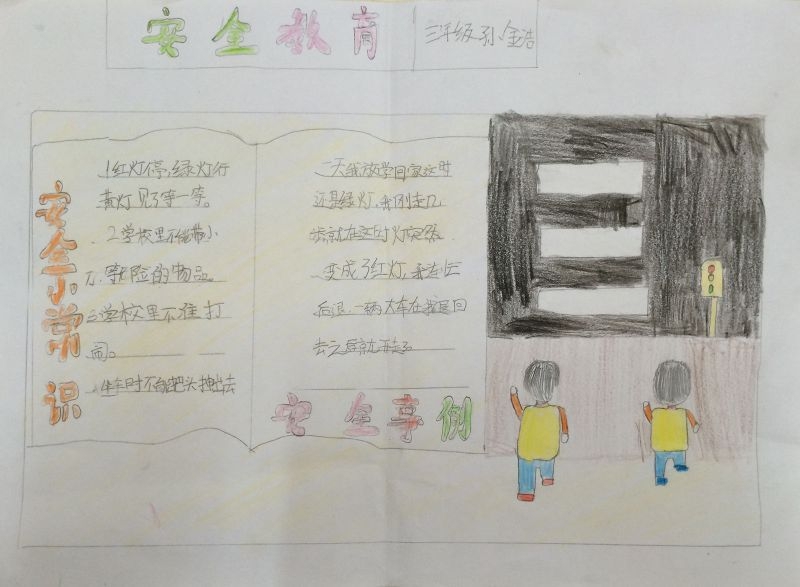 安全教育
三年级 孙金浩
安全小常识
1红灯停,绿灯行
黄灯见了等一等。
2学校里不能带小
刀、等险的物品。
3学校里不准打
闹。
坐车时不能把头拽出去
一天我放学回家这时
还是绿灯,我刚走几
步就在这时灯突然
变成了红灯,我赶忙
后退,一辆大车在我退回
去之后就开走了
安全事例